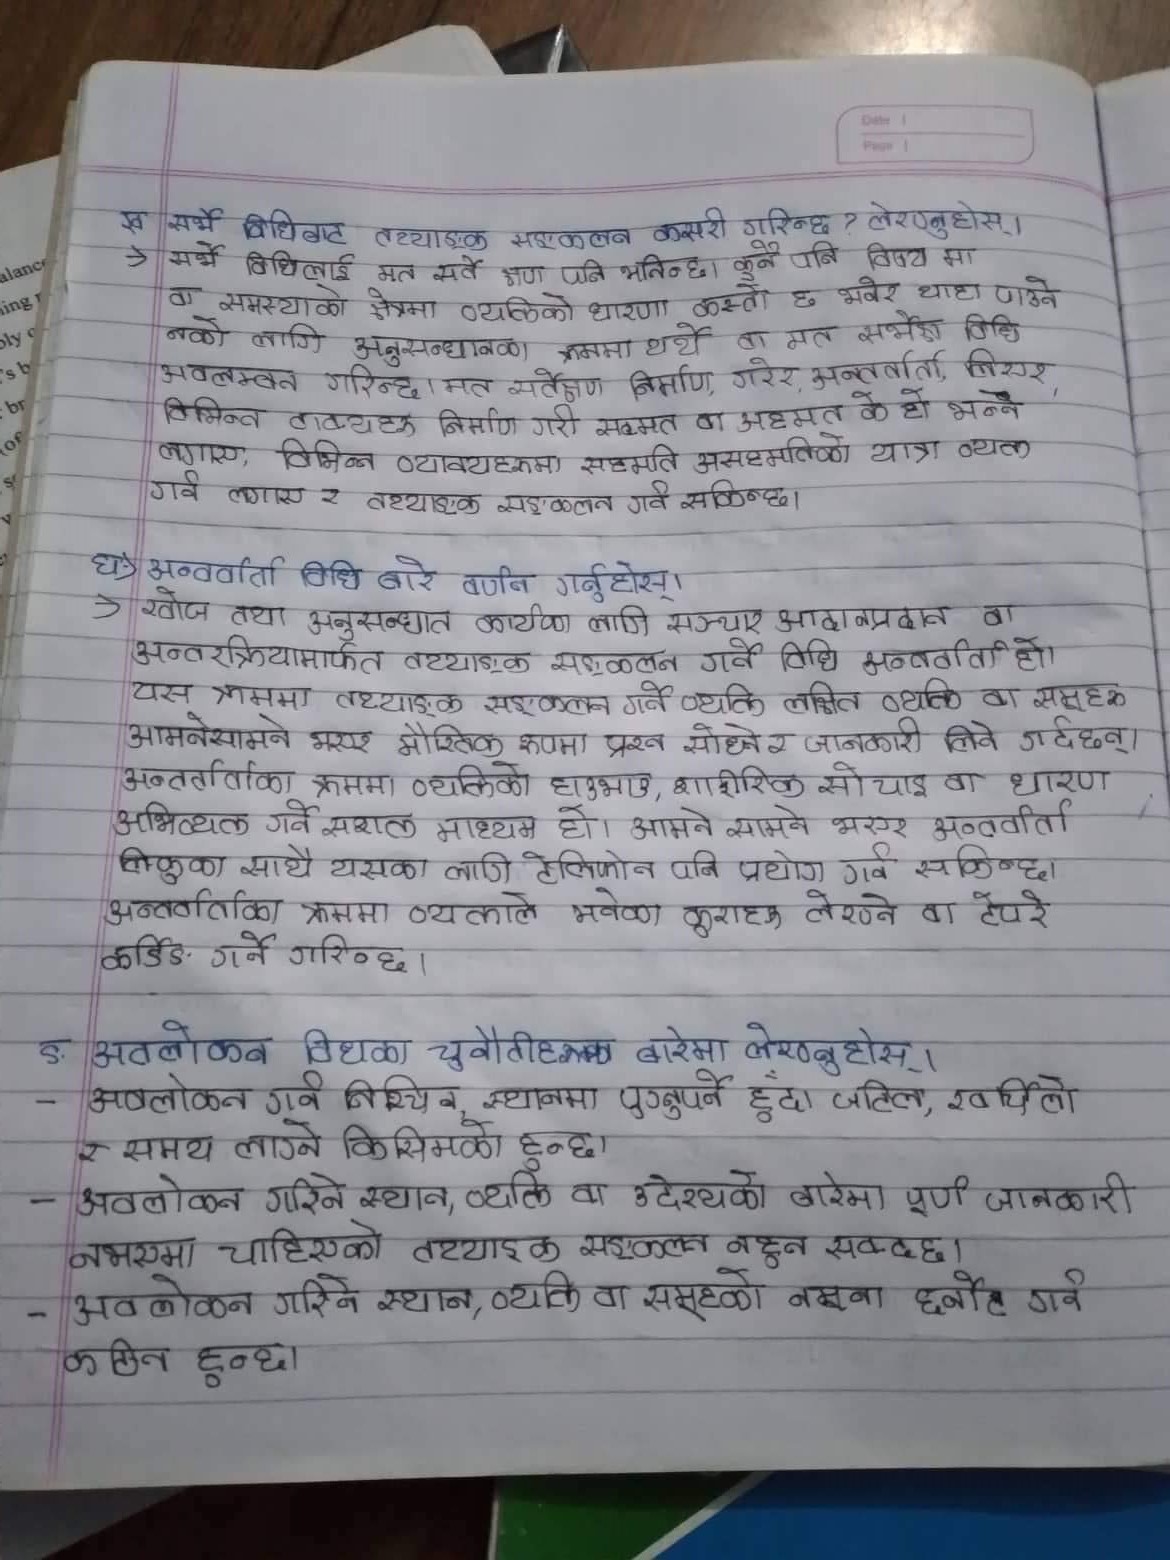 Date |
Page |
ख सर्भे विधिबाट तथ्याङ्क सङ्कलन कसरी गरिन्छ ? लेख्नुहोस् ।
→ सर्भे विधिलाई मत सर्वे क्षण पनि भनिन्छ। कुनै पनि विषय मा
वा समस्याको क्षेत्रमा व्यक्तिको धारणा कस्तो छ भनेर थाहा पाउने
नको लागि अनुसन्धानका क्रममा वा मत विधि
अवलम्बन गरिन्छ। मत सर्वेक्षण निर्माण, गरेर, अन्तर्वार्ता, लिएर,
विभिन्न वाक्यहरू निर्माण गरी सहमत वा असहमत के हो भन्ने
लगाएर, विभिन्न व्याक्यहरूमा सहमति असहमतिको यात्रा व्यक्त
गर्न लगाएर र तथ्याङ्क सङ्कलन गर्न सकिन्छ।
घ→ अन्तर्वार्ता विधि बारे वर्णन गर्नुहोस्।
→ खोज तथा अनुसन्धान कार्यका लागि सञ्चार आदानप्रदान वा
अन्तरक्रियामार्फत तथ्याङ्क सङ्कलन गर्ने विधि अन्तर्वार्ता हो।
यस क्रममा तथ्याङ्क सङ्कलन गर्ने व्यक्ति लक्षित व्यक्ति वा समूहरू
आमनेसामने भएर मौखिक रूपमा प्रश्न सोध्ने र जानकारी लिने गर्दछन्।
अन्तर्वार्ताका क्रममा व्यक्तिको हाउभाउ, शारीरिक सोचाइ वा धारण
अभिव्यक्त गर्ने सशक्त माध्यम हो। आमने सामने भएर अन्तर्वार्ता
लिनुका साथै यसका लागि टेलिफोन पनि प्रयोग गर्न सकिन्छ।
अन्तर्वार्ताका क्रममा व्यक्ताले भनेका कुराहरू लेख्ने वा टेप रे
कर्डिङ गर्ने गरिन्छ।
ङ. अवलोकन विधका चुनौतीहरूका बारेमा लेख्नुहोस् ।
- अवलोकन गर्न निश्चित स्थानमा पुग्नुपर्ने हुँदा जटिल, खर्चिलो
र समय लाग्ने किसिमको हुन्छ।
- अवलोकन गरिने स्थान, व्यक्ति वा उद्देश्यको बारेमा पूर्ण जानकारी
नभएमा चाहिएको तथ्याङ्क सङ्कलन नहुन सक्दछ।
- अवलोकन गरिने स्थान, व्यक्ति वा समूहको नमूना छनौट गर्न
कठिन हुन्छ।